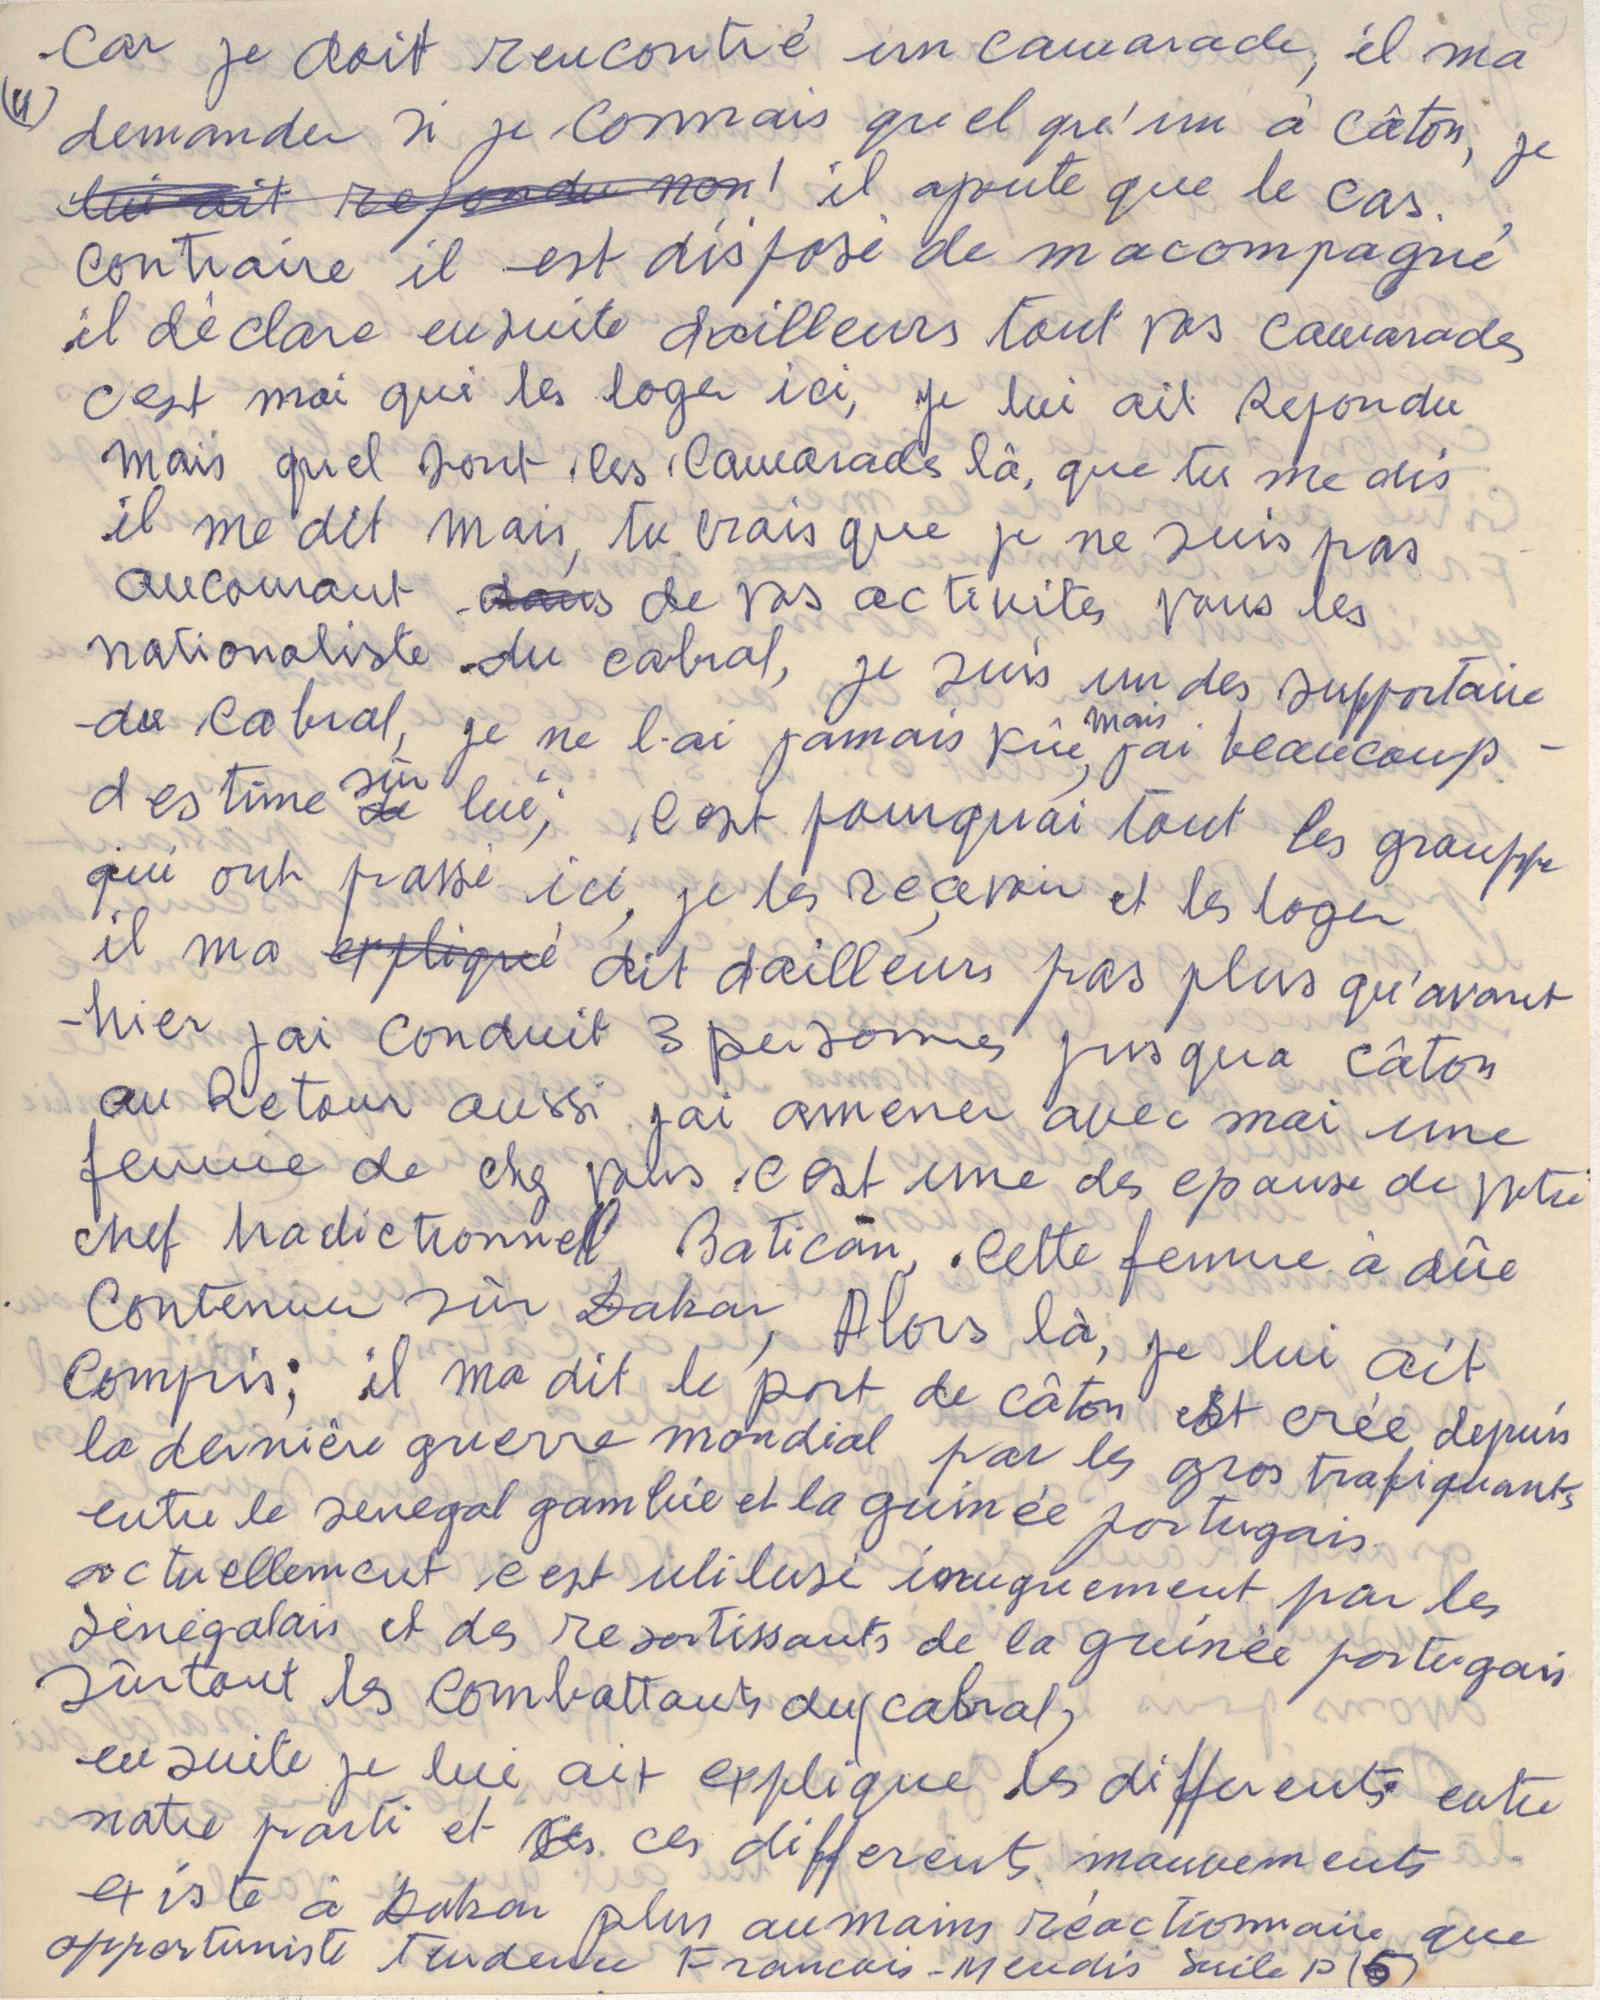 Car je doit rencontré un camarade, il ma
(4)
demander si je Connais quel qu'un à câton, je
lui ait repondu non! il ajoute que le cas
contraire il est disposé de macompagné
il déclare ensuite dailleurs tout vos camarades
c'est moi qui les loger ici, je lui ait Repondu
mais quel sont les Camarads là, que tu me dis
il me dit mais, tu crais que je ne suis pas
aucourant dans de vos activités vous les
nationaliste du cabral, je suis un des supportaire
du Cabral, je ne l'ai jamais vûe, mais j'ai beaucoup
destime de sûr lui, c'est pourquoi tout les grouppe
qui ont passé ici, je les reçevoir et les loger
il ma expliqué dit dailleurs pas plus qu'avant
-hier jai conduit 3 personnes jusqua câton
au Retour aussi jai amener avec moi une
femme de chez vous c'est une des epouse de votre
chef tradictionnell Batican, Cette femme à dûe
Contenuer sûr Dakar, Alors là, je lui ait
Compris; il ma dit le port de câton est crée depuis
la dernière guerre mondial par les gros trafiquants
entre le senegal gambie et la guinée portugais
actuellement c'est utilusé inuquement par les
sénégalais et des resortissants de la guinée portugais
Sûrtout les Combattants du cabral,
ensuite je lui ait explique les differents entre
notre parti et ces differents mouvements
existe à Dakar plus aumoins réactionnaire que
opportuniste tendence Francois-Mendis suite P(5)